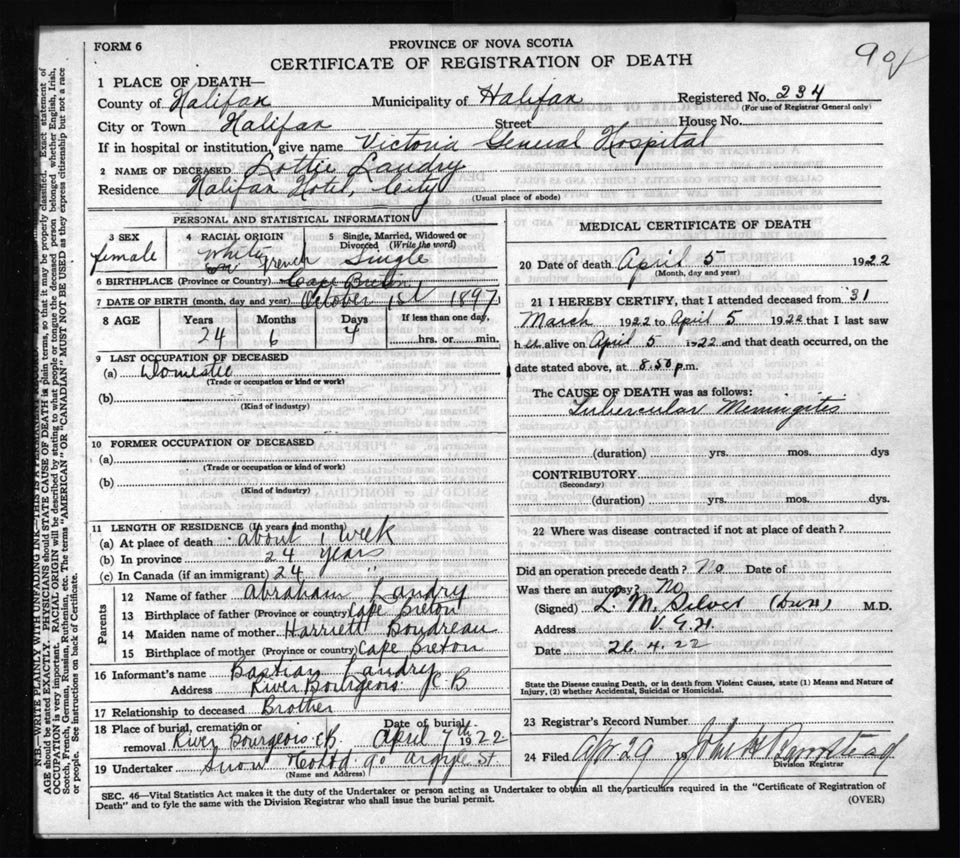 FORM 6
PROVINCE OF NOVA SCOTIA
CERTIFICATE OF REGISTRATION OF DEATH
1 PLACE OF DEATH—
County of Halifax Municipality of Halifax Registered No. 234
(For use of Registrar General only)
City or Town Halifax Street House No.
If in hospital or institution, give name Victoria General Hospital
2 NAME OF DECEASED Lottie Landry
Residence Halifax Hotel, City
(Usual place of abode)
PERSONAL AND STATISTICAL INFORMATION
3 SEX female
4 RACIAL ORIGIN White French
5 Single, Married, Widowed or Divorced (Write the word) Single
6 BIRTHPLACE (Province or Country) Cape Breton
7 DATE OF BIRTH (month, day and year) October 1st 1897
8 AGE Years Months Days If less than one day,
24 6 4 hrs. or min.
9 LAST OCCUPATION OF DECEASED
(a) Domestic
(Trade or occupation or kind or work)
(b)
(Kind of industry)
10 FORMER OCCUPATION OF DECEASED
(a)
(Trade or occupation or kind of work)
(b)
(Kind of industry)
11 LENGTH OF RESIDENCE (In years and months)
(a) At place of death about 1 week
(b) In province 24 years
(c) In Canada (if an immigrant) 24 "
Parents
12 Name of father Abraham Landry
13 Birthplace of father (Province or country) Cape Breton
14 Maiden name of mother Harriett Boudreau
15 Birthplace of mother (Province or country) Cape Breton
16 Informant's name Bastian Landry
Address River Bourgeois C B
17 Relationship to deceased Brother
18 Place of burial, cremation or removal River Bourgeois CB Date of burial April 7th 1922
19 Undertaker Snow & Co Ltd 90 Argyle St.
(Name and Address)
MEDICAL CERTIFICATE OF DEATH
20 Date of death April 5 1922
(Month, day and year)
21 I HEREBY CERTIFY, that I attended deceased from 31
March 1922 to April 5 1922 that I last saw
her alive on April 5 1922 and that death occurred, on the
date stated above, at 8.50 p.m.
The CAUSE OF DEATH was as follows:
Tubercular Meningitis
(duration) yrs. mos. dys
CONTRIBUTORY
(Secondary)
(duration) yrs. mos. dys.
22 Where was disease contracted if not at place of death?
Did an operation precede death? No Date of
Was there an autopsy? No
(Signed) L. M. Silver M.D.
Address V.G.H.
Date 26.4.22
State the Disease causing Death, or in death from Violent Causes, state (1) Means and Nature of
Injury, (2) whether Accidental, Suicidal or Homicidal.
23 Registrar's Record Number
24 Filed Apr 29 19 John H Barnstead
Division Registrar
SEC. 46—Vital Statistics Act makes it the duty of the Undertaker or person acting as Undertaker to obtain all the particulars required in the "Certificate of Registration of
Death" and to fyle the same with the Division Registrar who shall issue the burial permit.
(OVER)
N.B.—WRITE PLAINLY WITH UNFADING INK—THIS IS A PERMANENT
AGE should be stated EXACTLY. PHYSICIANS should STATE CAUSE OF DEATH in plain terms, so that it may be properly classified. Exact statement of
OCCUPATION is very important. RACIAL ORIGIN will be described by stating to what people or tongue the deceased person belonged whether English, Irish,
Scotch, French, German, Russian, Ruthenian, etc. The terms "AMERICAN" OR "CANADIAN" MUST NOT BE USED as they express citizenship but not a race
or people. See instructions on back of Certificate.